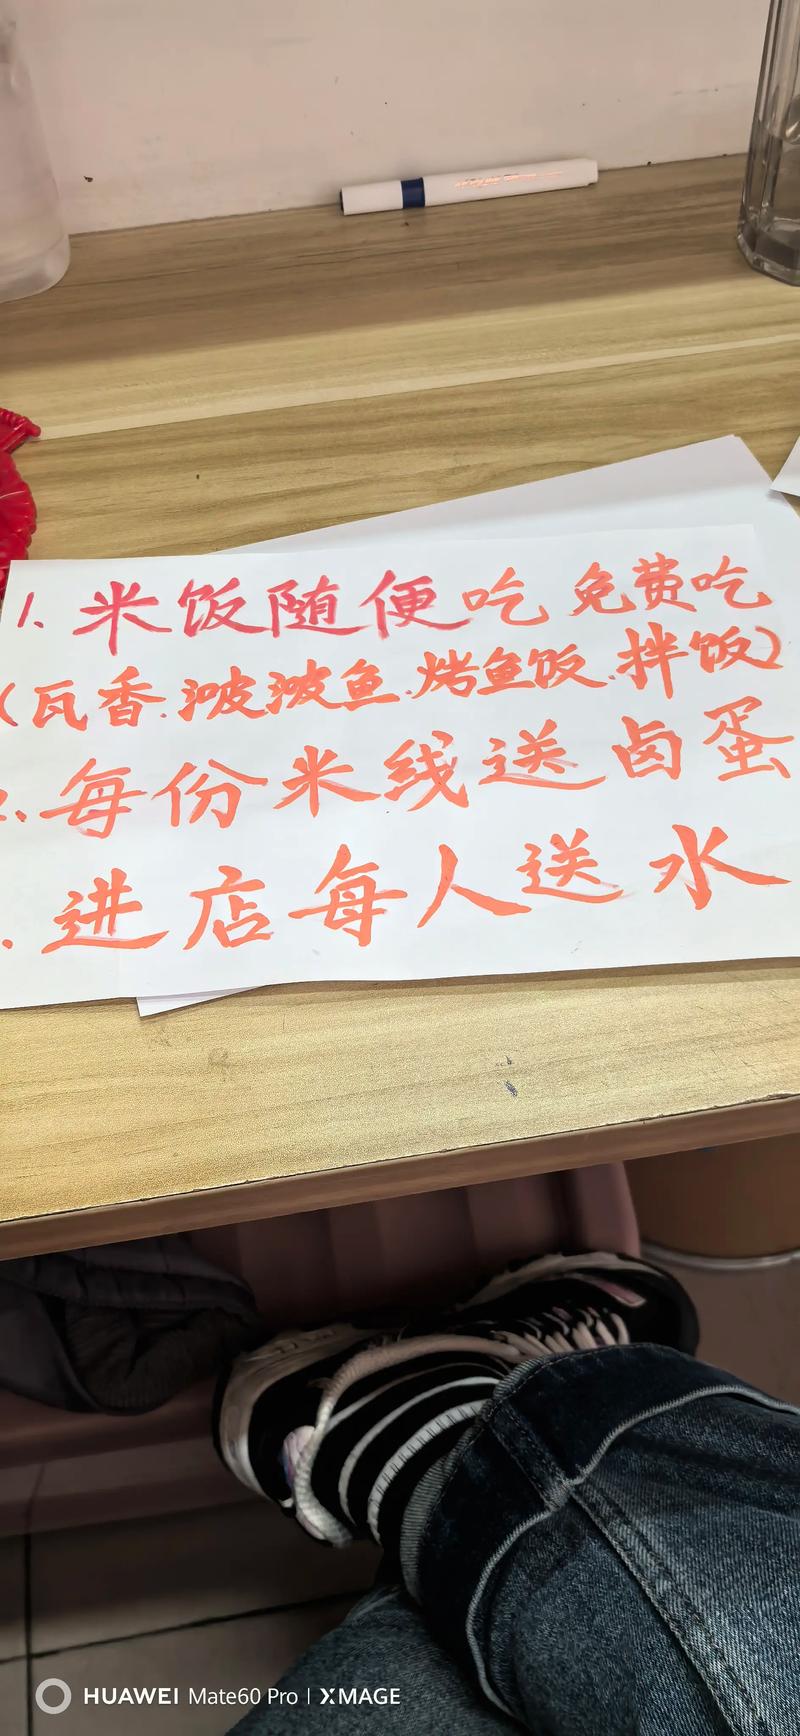 1、米饭随便吃 免费吃
(瓦香.波波鱼.烤鱼饭.拌饭)
2、每份米线送卤蛋
、进店每人送水
HUAWEI Mate60 Pro | XMAGE